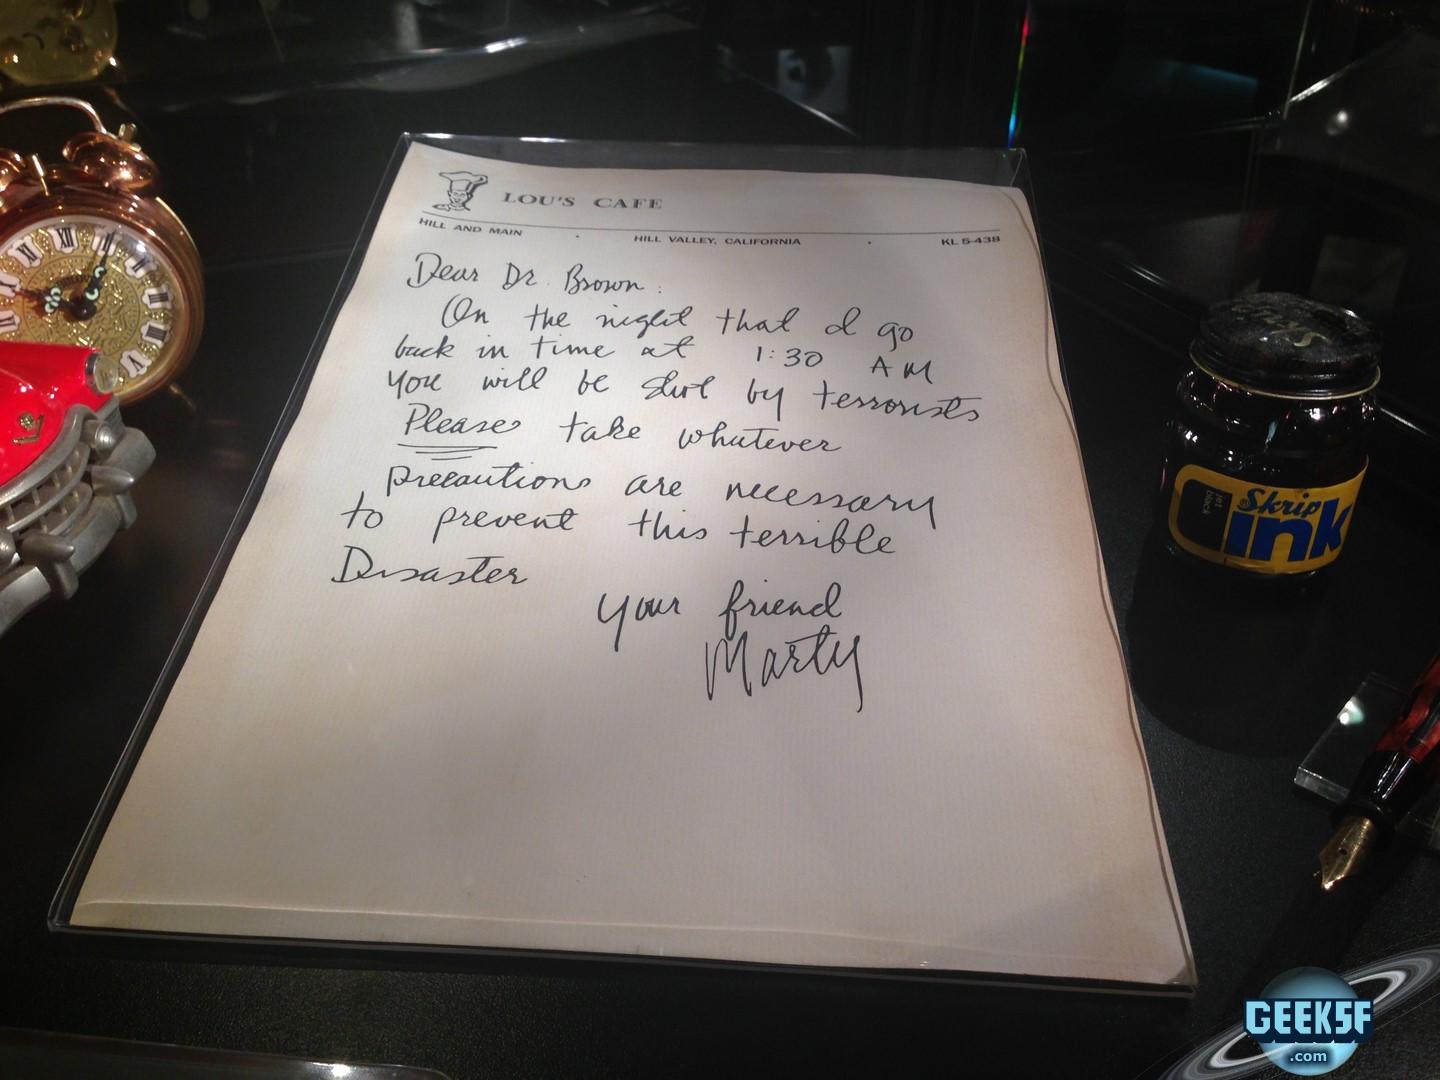 LOU'S CAFE
HILL AND MAIN . HILL VALLEY, CALIFORNIA . KL 5-438
Dear Dr. Brown:
On the night that I go
back in time at 1:30 AM
you will be shot by terrorists
Please take whatever
precautions are necessary
to prevent this terrible
Disaster
your friend
Marty
XII
Skrip
jet black
Skrip
ink
GEEKSF
.com